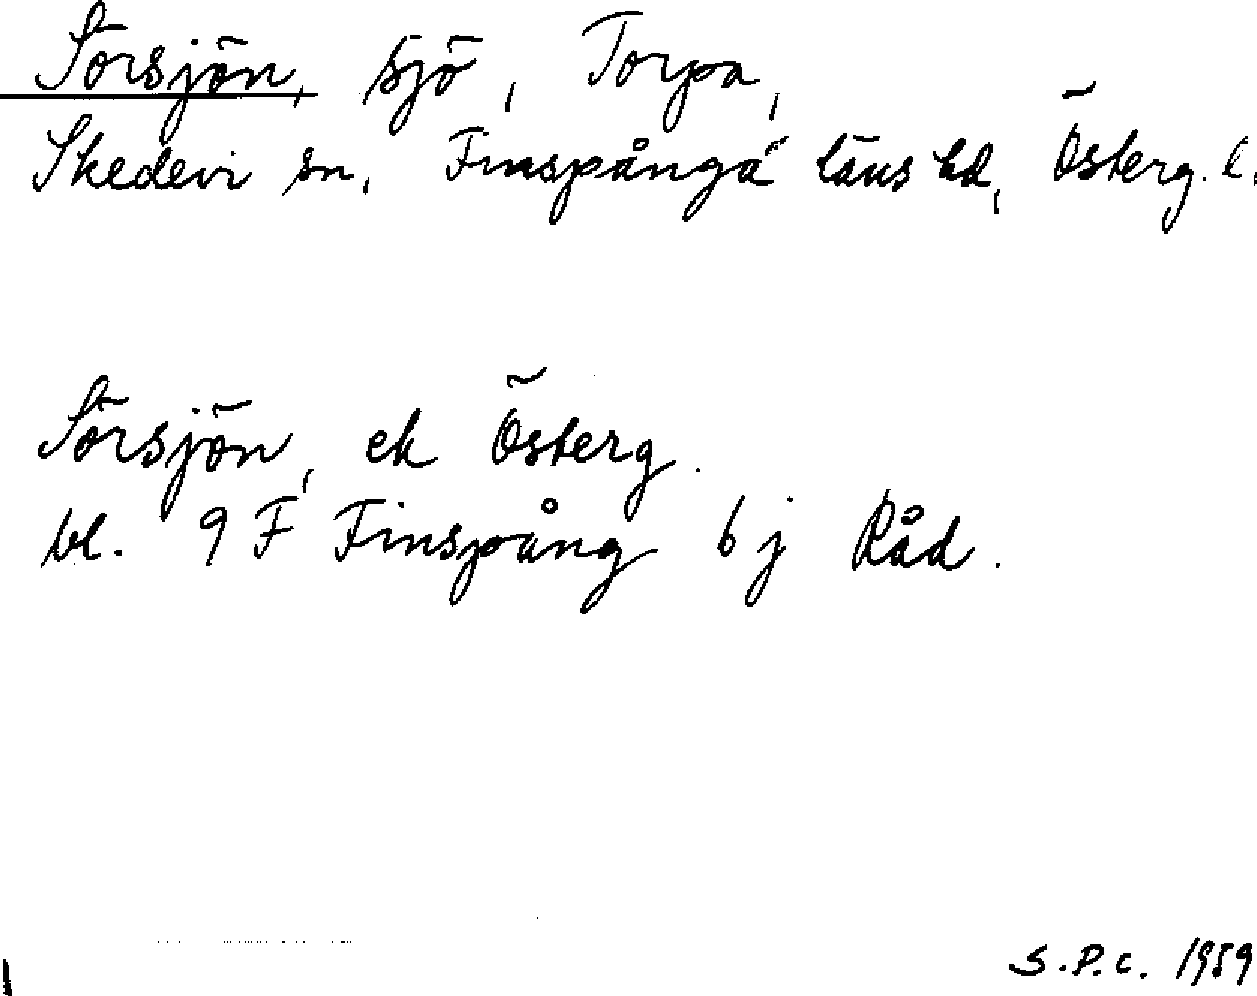 Sörsjön, sjö, Torpa,
Skedevi sn, Finspånga läns hd, Österg. l.
Sörsjön, ek Österg.
bl. 9 F Finspång 6 j Råd.
S.P.C. 1959